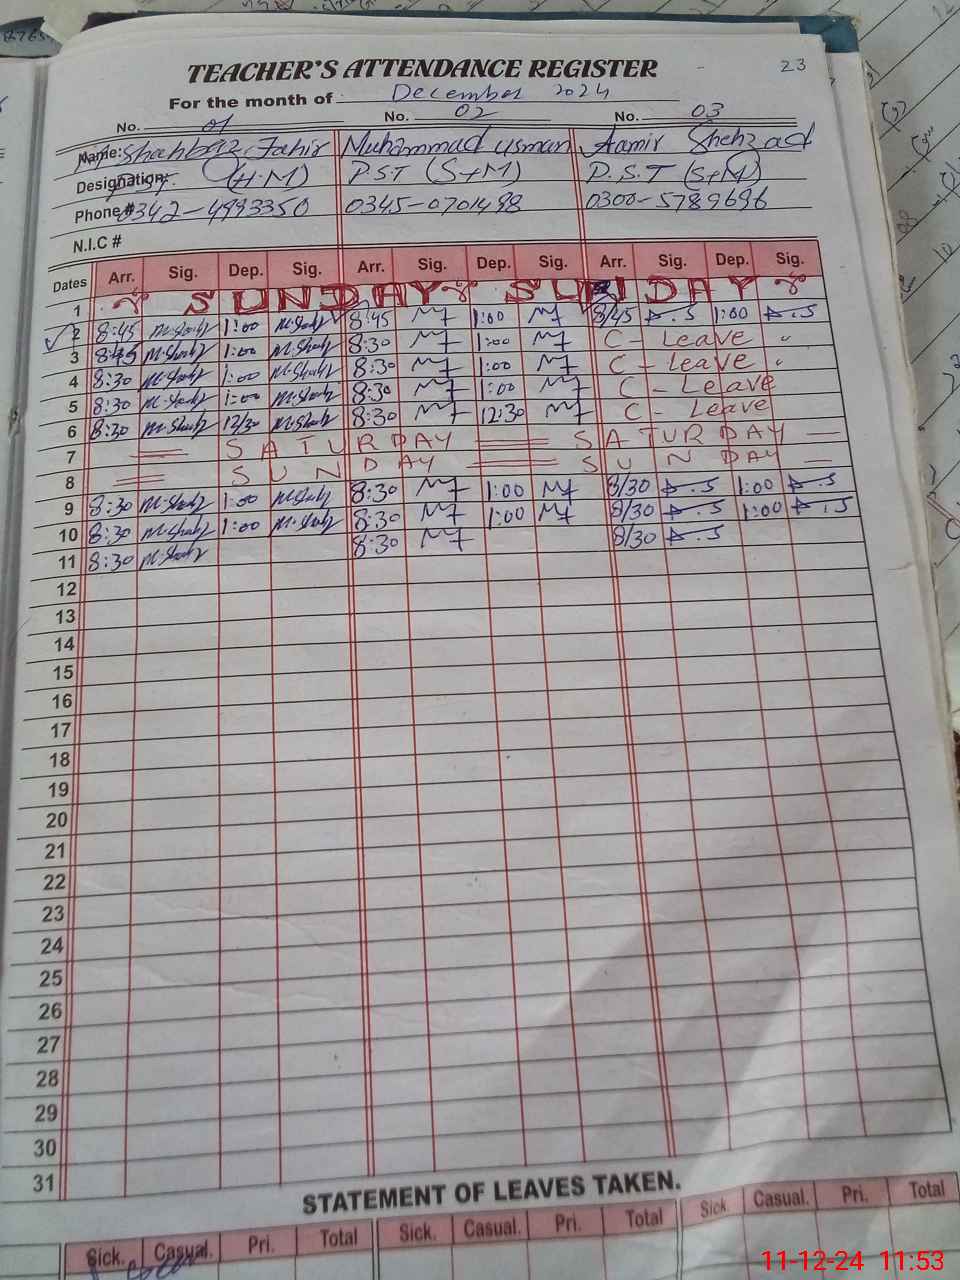 23
TEACHER'S ATTENDANCE REGISTER
For the month of December 2024
No. 01 No. 02 No. 03
Name: Shahbaz Tahir Muhammad Usman Aamir Shehzad
Designation: P.S.T. (H.M) P.S.T (S+M) P.S.T (S+M)
Phone # 0342-4993350 0345-0701498 0300-5789696
N.I.C #
Dates Arr. Sig. Dep. Sig. Arr. Sig. Dep. Sig. Arr. Sig. Dep. Sig.
1 SUNDAY SUNDAY
2 8:45 M.Shahz 1:00 M.Shahz 8:45 1:00 8/45 A.S 1:00 A.S
3 8:45 M.Shahz 1:00 M.Shahz 8:30 1:00 C - Leave "
4 8:30 M.Shahz 1:00 M.Shahz 8:30 1:00 C - Leave "
5 8:30 M.Shahz 1:00 M.Shahz 8:30 1:00 C - Leave
6 8:30 M.Shahz 12/30 M.Shahz 8:30 12:30 C - Leave
7 = SATURDAY = SATURDAY —
8 = SUNDAY = SUNDAY —
9 8:30 M.Shahz 1:00 M.Shahz 8:30 1:00 8/30 A.S 1:00 A.S
10 8:30 M.Shahz 1:00 M.Shahz 8:30 1:00 8/30 A.S 1:00 A.S
11 8:30 M.Shahz 8:30 8/30 A.S
12
13
14
15
16
17
18
19
20
21
22
23
24
25
26
27
28
29
30
31
STATEMENT OF LEAVES TAKEN.
Sick. Casual. Pri. Total Sick. Casual. Pri. Total Sick. Casual. Pri. Total
11-12-24 11:53